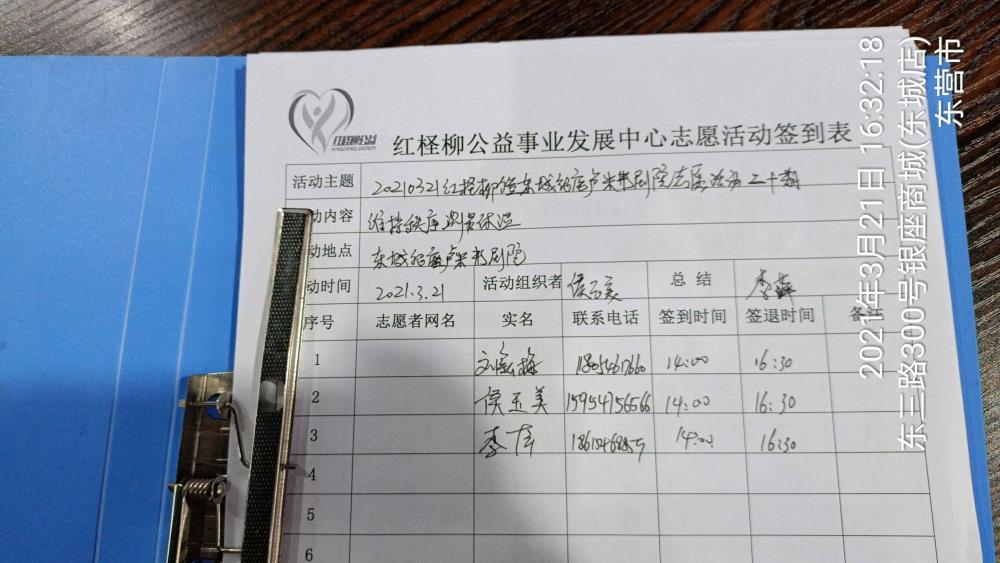 红柽柳公益
红柽柳公益事业发展中心志愿活动签到表
活动主题 20210321红柽柳德东城银座卢米书剧院志愿活动二十期
动内容 维持秩序测量体温
动地点 东城银座卢米书剧院
动时间 2021.3.21 活动组织者 侯玉美 总结 李萍
序号 志愿者网名 实名 联系电话 签到时间 签退时间 备注
1 14:00 16:30
2 侯玉美 15954756566 14:00 16:30
3 14:00 16:30
4
5
6
2021年3月21日 16:32:18
东三路300号银座商城(东城店)
东营市